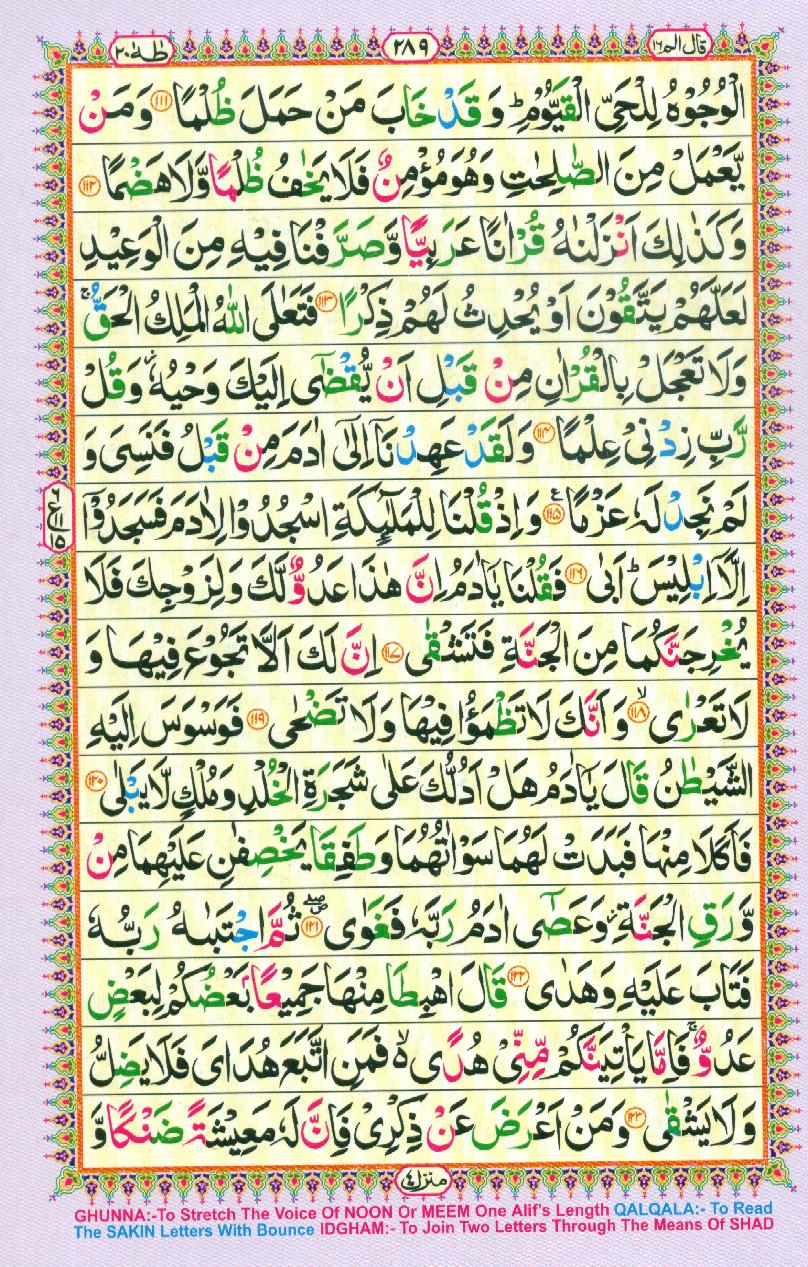 قال الم ١٦
٢٨٩
طٰهٰ ٢٠
الْوُجُوْهُ لِلْحَيِّ الْقَيُّوْمِ ؕ وَ قَدْ خَابَ مَنْ حَمَلَ ظُلْمًا ﴿۱۱۱﴾ وَ مَنْ
يَّعْمَلْ مِنَ الصّٰلِحٰتِ وَهُوَ مُؤْمِنٌ فَلَا يَخٰفُ ظُلْمًا وَّلَا هَضْمًا ﴿۱۱۲﴾
وَ كَذٰلِكَ اَنْزَلْنٰهُ قُرْاٰنًا عَرَبِيًّا وَّ صَرَّفْنَا فِيْهِ مِنَ الْوَعِيْدِ
لَعَلَّهُمْ يَتَّقُوْنَ اَوْ يُحْدِثُ لَهُمْ ذِكْرًا ﴿۱۱۳﴾ فَتَعٰلَى اللّٰهُ الْمَلِكُ الْحَقُّ ۚ
وَلَا تَعْجَلْ بِالْقُرْاٰنِ مِنْ قَبْلِ اَنْ يُّقْضٰٓى اِلَيْكَ وَحْيُهٗ ؗ وَ قُلْ
رَّبِّ زِدْنِيْ عِلْمًا ﴿۱۱۴﴾ وَلَقَدْ عَهِدْنَاۤ اِلٰۤى اٰدَمَ مِنْ قَبْلُ فَنَسِيَ وَ
لَمْ نَجِدْ لَهٗ عَزْمًا ﴿۱۱۵﴾ ع وَ اِذْ قُلْنَا لِلْمَلٰٓئِكَةِ اسْجُدُوْا لِاٰدَمَ فَسَجَدُوْۤا
اِلَّاۤ اِبْلِيْسَ ؕ اَبٰى ﴿۱۱۶﴾ فَقُلْنَا يٰۤاٰدَمُ اِنَّ هٰذَا عَدُوٌّ لَّكَ وَ لِزَوْجِكَ فَلَا
يُخْرِجَنَّكُمَا مِنَ الْجَنَّةِ فَتَشْقٰى ﴿۱۱۷﴾ اِنَّ لَكَ اَلَّا تَجُوْعَ فِيْهَا وَ
لَا تَعْرٰى ۙ﴿۱۱۸﴾ وَ اَنَّكَ لَا تَظْمَؤُا فِيْهَا وَلَا تَضْحٰى ﴿۱۱۹﴾ فَوَسْوَسَ اِلَيْهِ
الشَّيْطٰنُ قَالَ يٰۤاٰدَمُ هَلْ اَدُلُّكَ عَلٰى شَجَرَةِ الْخُلْدِ وَ مُلْكٍ لَّا يَبْلٰى ﴿۱۲۰﴾
فَاَكَلَا مِنْهَا فَبَدَتْ لَهُمَا سَوْاٰتُهُمَا وَ طَفِقَا يَخْصِفٰنِ عَلَيْهِمَا مِنْ
وَّرَقِ الْجَنَّةِ ؗ وَ عَصٰۤى اٰدَمُ رَبَّهٗ فَغَوٰى ﴿۱۲۱﴾ ثُمَّ اجْتَبٰىهُ رَبُّهٗ
فَتَابَ عَلَيْهِ وَ هَدٰى ﴿۱۲۲﴾ قَالَ اهْبِطَا مِنْهَا جَمِيْعًۢا بَعْضُكُمْ لِبَعْضٍ
عَدُوٌّ ۚ فَاِمَّا يَاْتِيَنَّكُمْ مِّنِّيْ هُدًى ۙ۬ فَمَنِ اتَّبَعَ هُدَايَ فَلَا يَضِلُّ
وَلَا يَشْقٰى ﴿۱۲۳﴾ وَ مَنْ اَعْرَضَ عَنْ ذِكْرِيْ فَاِنَّ لَهٗ مَعِيْشَةً ضَنْكًا وَّ
٦
ع ١١
١٥
منزل ٤
GHUNNA:-To Stretch The Voice Of NOON Or MEEM One Alif's Length QALQALA:- To Read
The SAKIN Letters With Bounce IDGHAM:- To Join Two Letters Through The Means Of SHAD